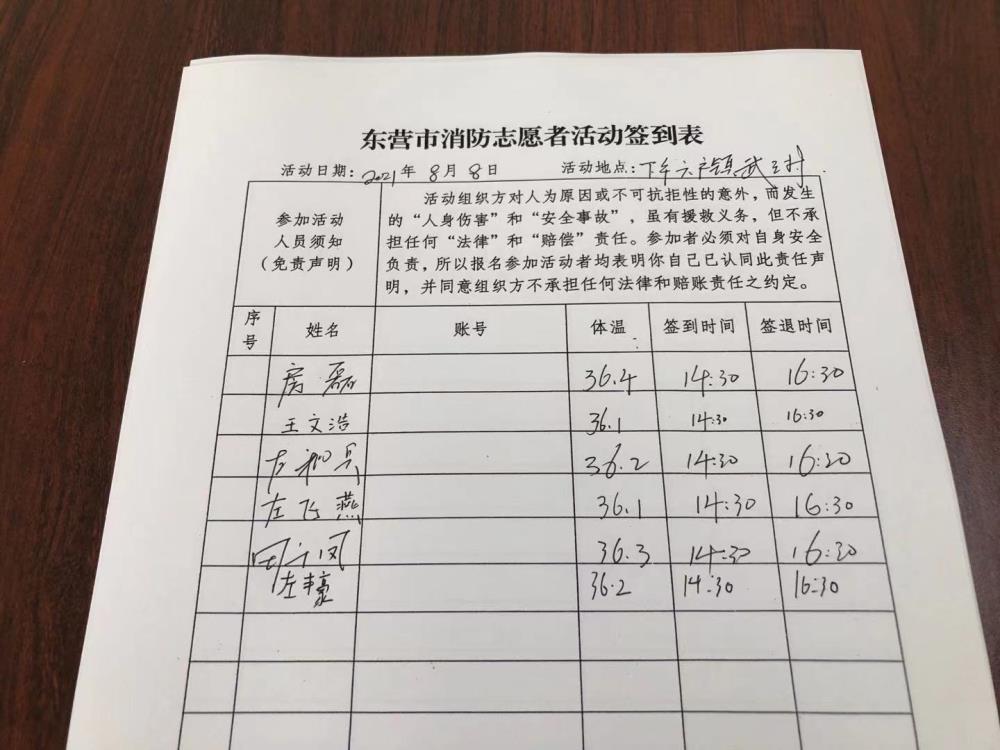 东营市消防志愿者活动签到表
活动日期：2021年8月8日 活动地点：下六户镇武王村
参加活动人员须知（免责声明）
活动组织方对人为原因或不可抗拒性的意外，而发生
的“人身伤害”和“安全事故”，虽有援救义务，但不承
担任何“法律”和“赔偿”责任。参加者必须对自身安全
负责，所以报名参加活动者均表明你自己已认同此责任声
明，并同意组织方不承担任何法律和赔账责任之约定。
序号 姓名 账号 体温 签到时间 签退时间
房磊 36.4 14:30 16:30
王文浩 36.1 14:30 16:30
左 36.2 14:30 16:30
左飞燕 36.1 14:30 16:30
凤 36.3 14:30 16:30
左 36.2 14:30 16:30